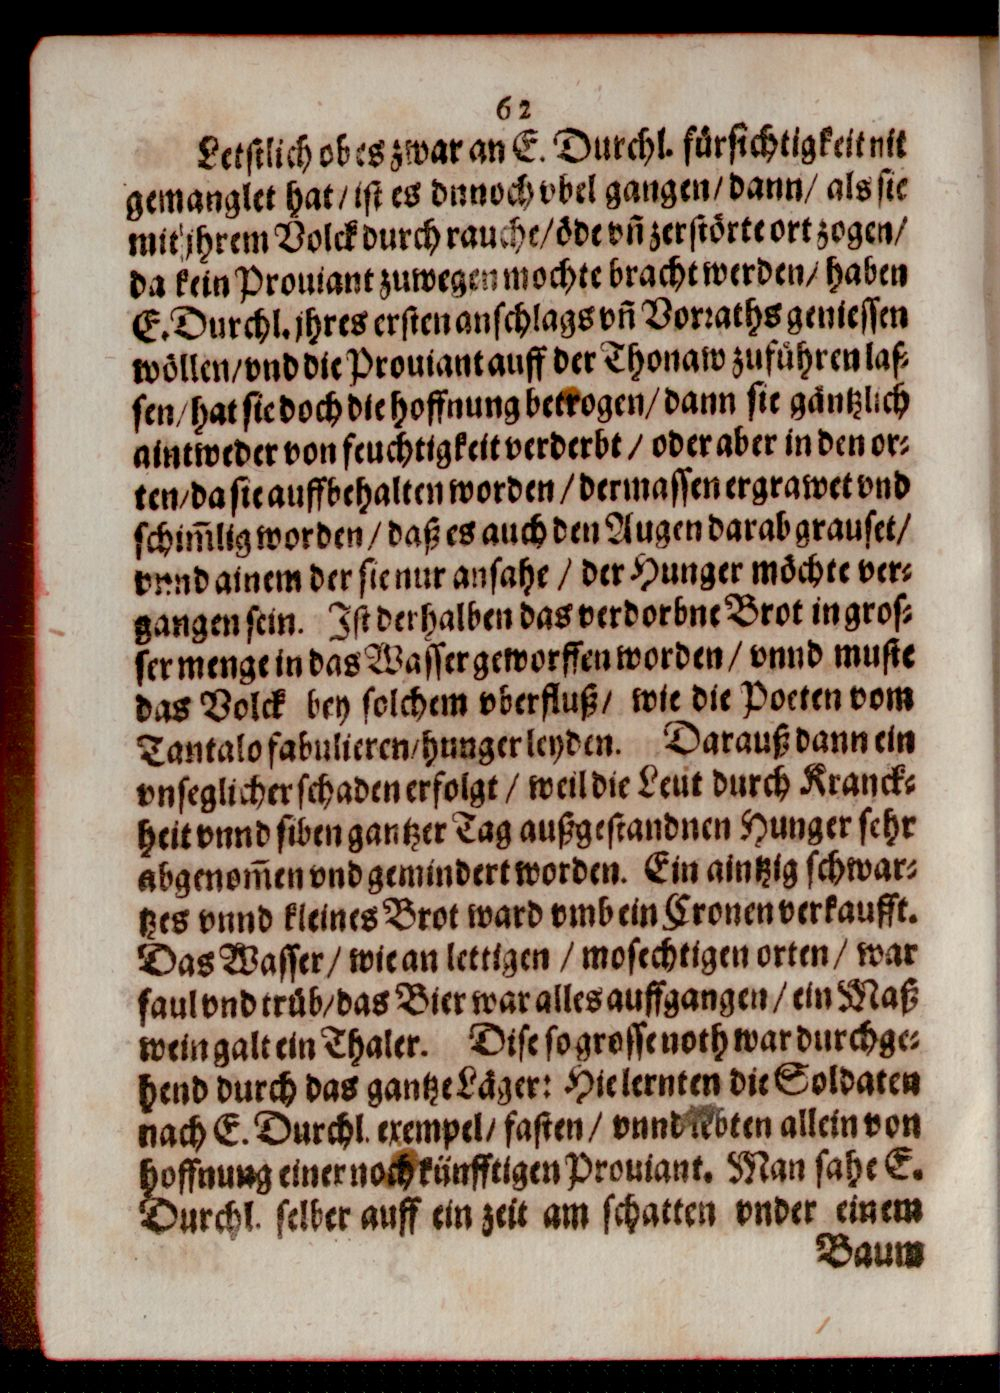 62
Letstlich ob es zwar an E. Durchl. fürsichtigkeit nit
gemanglet hat / ist es dnnoch vbel gangen / dann / als sie
mit jhrem Volck durch rauche / öde vñ zerstörte ort zogen /
da kein Prouiant zuwegen mochte bracht werden / haben
E. Durchl. jhres ersten anschlags vñ Vorraths geniessen
wöllen / vnd die Prouiant auff der Thonaw zuführen las-
sen / hat sie doch die hoffnung betrogen / dann sie gäntzlich
aintweder von feuchtigkeit verderbt / oder aber in den or-
ten / da sie auffbehalten worden / dermassen ergrawet vnd
schim̃lig worden / daß es auch den Augen darab grauset /
vnnd ainem der sie nur ansahe / der Hunger möchte ver-
gangen sein. Ist derhalben das verdorbne Brot in gros-
ser menge in das Wasser geworffen worden / vnnd muste
das Volck bey solchem vberfluß / wie die Poeten vom
Tantalo fabulieren / hunger leyden. Darauß dann ein
vnseglicher schaden erfolgt / weil die Leut durch Kranck-
heit vnnd siben gantzer Tag außgestandnen Hunger sehr
abgenom̃en vnd gemindert worden. Ein aintzig schwar-
tzes vnnd kleines Brot ward vmb ein Cronen verkaufft.
Das Wasser / wie an lettigen / mosechtigen orten / war
faul vnd trüb / das Bier war alles auffgangen / ein Maß
wein galt ein Thaler. Dise so grosse noth war durchge-
hend durch das gantze Läger: Hie lernten die Soldaten
nach E. Durchl. exempel / fasten / vnnd lebten allein von
hoffnung einer noch künfftigen Prouiant. Man sahe E.
Durchl. selber auff ein zeit am schatten vnder einem
Baum